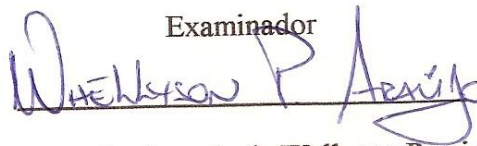 Examinador
Whellyson P. Araújo